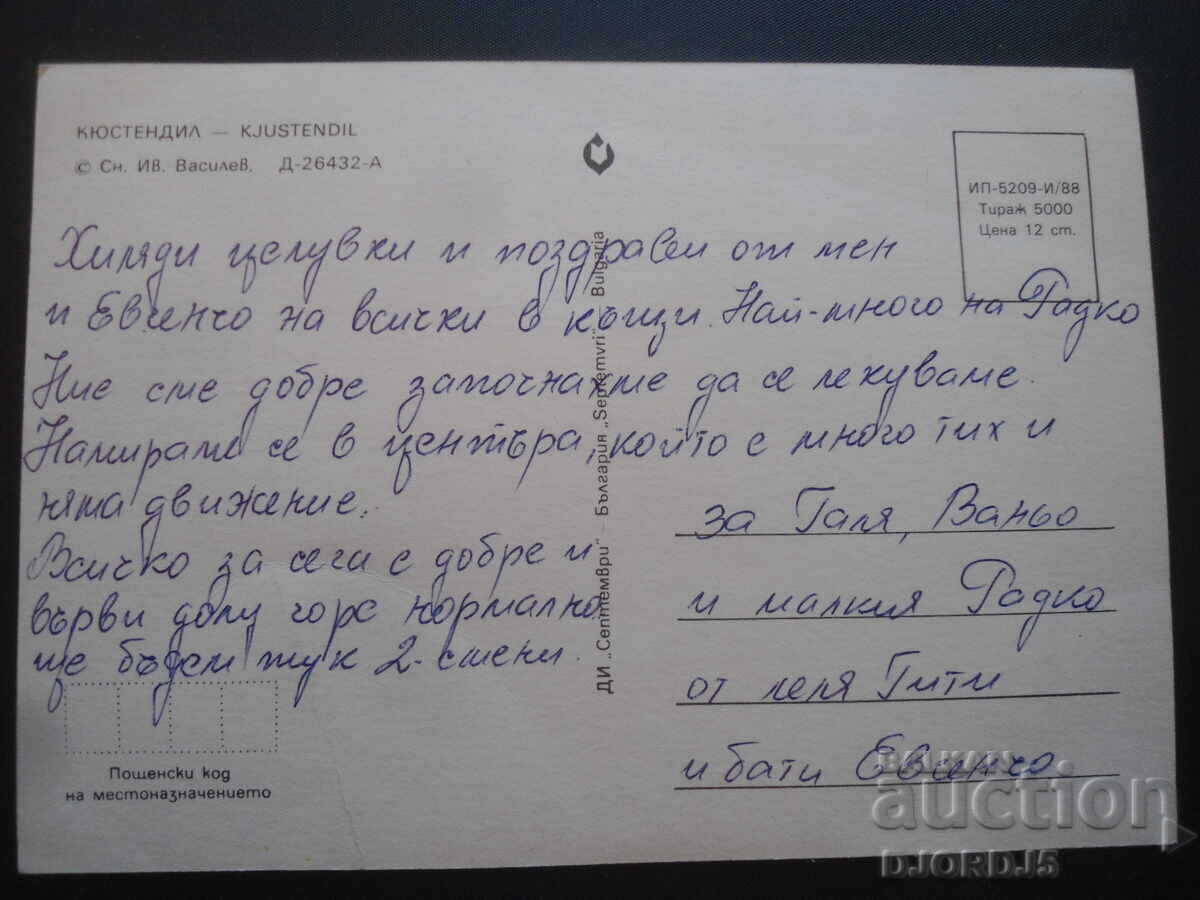 КЮСТЕНДИЛ — KJUSTENDIL
© Сн. Ив. Василев. Д-26432-А
ИП-5209-И/88
Тираж 5000
Цена 12 ст.
Хиляди целувки и поздрави от мен
и Евенчо на всички в къщи. Най-много на Радко
Ние сме добре започнахме да се лекуваме.
Намираме се в центъра, който е много тих и
няма движение.
Всичко за сега е добре и
върви долу горе нормално
ще бъдем тук 2-смени.
ДИ „Септември“ — България „Septemvri“ Bulgaria
за Галя, Ваньо
и малкия Радко
от леля Гити
и бати Евенчо
Пощенски код
на местоназначението
BALKAN
auction
DJORDJ5